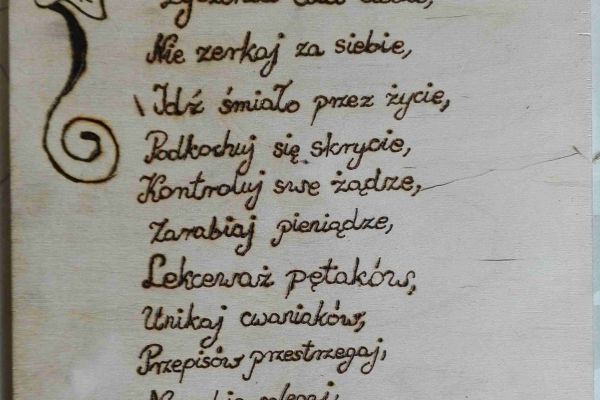 Nie zerkaj za siebie,
Idź śmiało przez życie,
Podkochuj się skrycie,
Kontroluj swe żądze,
Zarabiaj pieniądze,
Lekceważ pętaków,
Unikaj cwaniaków,
Przepisów przestrzegaj,